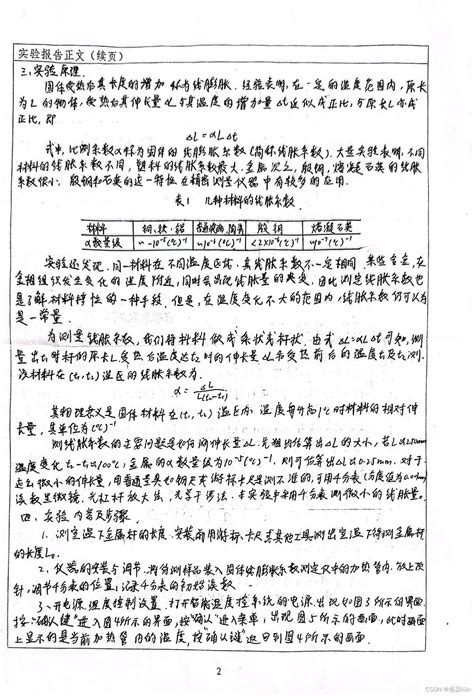 实验报告正文（续页）
三、实验原理
固体受热后其长度的增加称为线膨胀。经验表明，在一定的温度范围内，原长
为L的物体，受热后其伸长量ΔL与其温度的增加量Δt近似成正比，与原长L亦成
正比，即
ΔL = αLΔt
式中，比例系数α称为固体的线膨胀系数（简称线胀系数）。大量实验表明，不同
材料的线胀系数不同，塑料的线胀系数最大，金属次之，殷钢、熔凝石英的线胀
系数很小。殷钢和石英的这一特性在精密测量仪器中有较多的应用。
表1 几种材料的线胀系数
材料 铜、铁、铝 普通玻璃、陶瓷 殷钢 熔凝石英
α数量级 ~10⁻⁵(℃)⁻¹ ~10⁻⁶(℃)⁻¹ <2×10⁻⁶(℃)⁻¹ ~10⁻⁷(℃)⁻¹
实验还发现，同一材料在不同温度区域，其线胀系数不一定相同。某些合金，在
金相组织发生变化的温度附近，同时会出现线胀量的突变。因此测定线胀系数也
是了解材料特性的一种手段。但是，在温度变化不大的范围内，线胀系数仍可认为
是一常量。
为测量线胀系数，我们将材料做成条状或杆状。由式ΔL=αLΔt可知，测
量出t₁时杆的原长L、受热后温度达t₂时的伸长量ΔL和受热前后的温度t₁及t₂，则
该材料在(t₁,t₂)温区的线胀系数为
α = ΔL / L(t₂-t₁)
其物理意义是固体材料在(t₁,t₂)温区内，温度每升高1℃时材料的相对伸
长量，其单位为(℃)⁻¹
测线胀系数的主要问题是如何测伸长量ΔL。先粗估算出ΔL的大小，若L≈250mm
温度变化t₂-t₁≈100℃，金属的α数量级为10⁻⁵(℃)⁻¹，则可估算出ΔL≈0.25mm。对于
这么微小的伸长量，用普通量具如钢尺或游标卡尺是测不准的，可用千分表（分度值为0.001mm）
读数显微镜、光杠杆放大法、光学干涉法。本实验中采用千分表测微小的线胀量。
四、实验内容及步骤
1、测室温下金属杆的长度。安装前用游标卡尺或其他工具测出室温下待测金属杆
的长度L₀
2、仪器的安装与调节。将待测样品装入固体线膨胀系数测定仪中的加热管内，
针，调节千分表的位置，记录千分表的初始读数
3、开电源，温度控制设置。打开智能温度控系统的电源，出现如图3所示的界面
按“确认键”进入图4所示的界面，按“确认”进入菜单，出现图5所示的画面，此时画面
上显示的是当前加热管内的温度，按“确认键”返回到图4所示的画面
2
CSDN